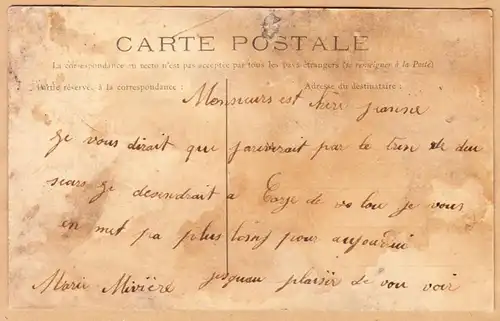 CARTE POSTALE
La correspondance au recto n'est pas acceptée par tous les pays étrangers (se renseigner à la Poste)
Partie réservée à la correspondance : Adresse du destinataire :
Monsieurs est
ge vous dirait que jariverait par le tren de deu
ge desendrait a de vo lou je vous
en met pa plus long pour aujourdui
Marii Mivière jusquau plaisir de vou voir